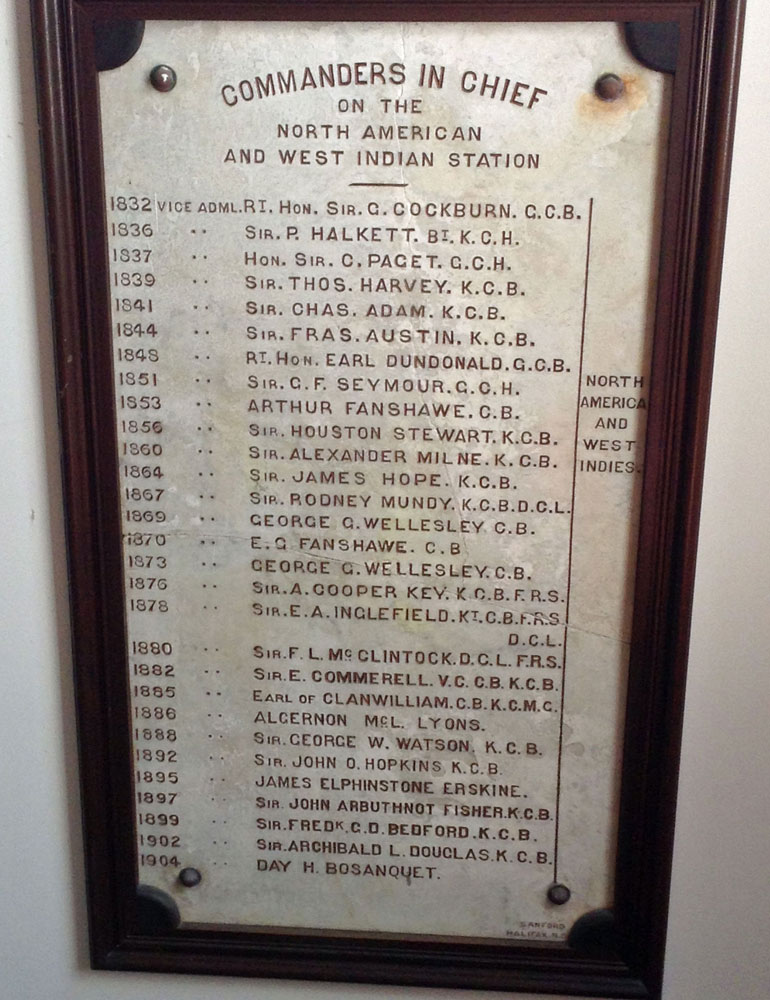 COMMANDERS IN CHIEF
ON THE
NORTH AMERICAN
AND WEST INDIAN STATION
1832 VICE ADML. RT. HON. SIR. G. COCKBURN. G.C.B.
1836 ·· SIR. P. HALKETT. BT. K.C.H.
1837 ·· HON. SIR. C. PAGET. G.C.H.
1839 ·· SIR. THOS. HARVEY. K.C.B.
1841 ·· SIR. CHAS. ADAM. K.C.B.
1844 ·· SIR. FRAS. AUSTIN. K.C.B.
1848 ·· RT. HON. EARL DUNDONALD. G.C.B.
1851 ·· SIR. G. F. SEYMOUR. G.C.H.
1853 ·· ARTHUR FANSHAWE. C.B.
1856 ·· SIR. HOUSTON STEWART. K.C.B.
1860 ·· SIR. ALEXANDER MILNE. K.C.B.
1864 ·· SIR. JAMES HOPE. K.C.B.
1867 ·· SIR. RODNEY MUNDY. K.C.B. D.C.L.
1869 ·· GEORGE G. WELLESLEY C.B.
1870 ·· E. G FANSHAWE. C.B
1873 ·· GEORGE G. WELLESLEY. C.B.
1876 ·· SIR. A. COOPER KEY. K.C.B. F.R.S.
1878 ·· SIR. E. A. INGLEFIELD. KT. C.B. F.R.S.
D.C.L.
1880 ·· SIR. F. L. MC CLINTOCK. D.C.L. F.R.S.
1882 ·· SIR. E. COMMERELL. V.C. C.B. K.C.B.
1885 ·· EARL OF CLANWILLIAM. C.B. K.C.M.G.
1886 ·· ALGERNON MCL. LYONS.
1888 ·· SIR. GEORGE W. WATSON. K.C.B.
1892 ·· SIR. JOHN O. HOPKINS K.C.B.
1895 ·· JAMES ELPHINSTONE ERSKINE.
1897 ·· SIR. JOHN ARBUTHNOT FISHER. K.C.B.
1899 ·· SIR. FREDK. G. D. BEDFORD. K.C.B.
1902 ·· SIR. ARCHIBALD L. DOUGLAS. K.C.B.
1904 ·· DAY H. BOSANQUET.
NORTH
AMERICA
AND
WEST
INDIES.
SANFORD
HALIFAX. N.S